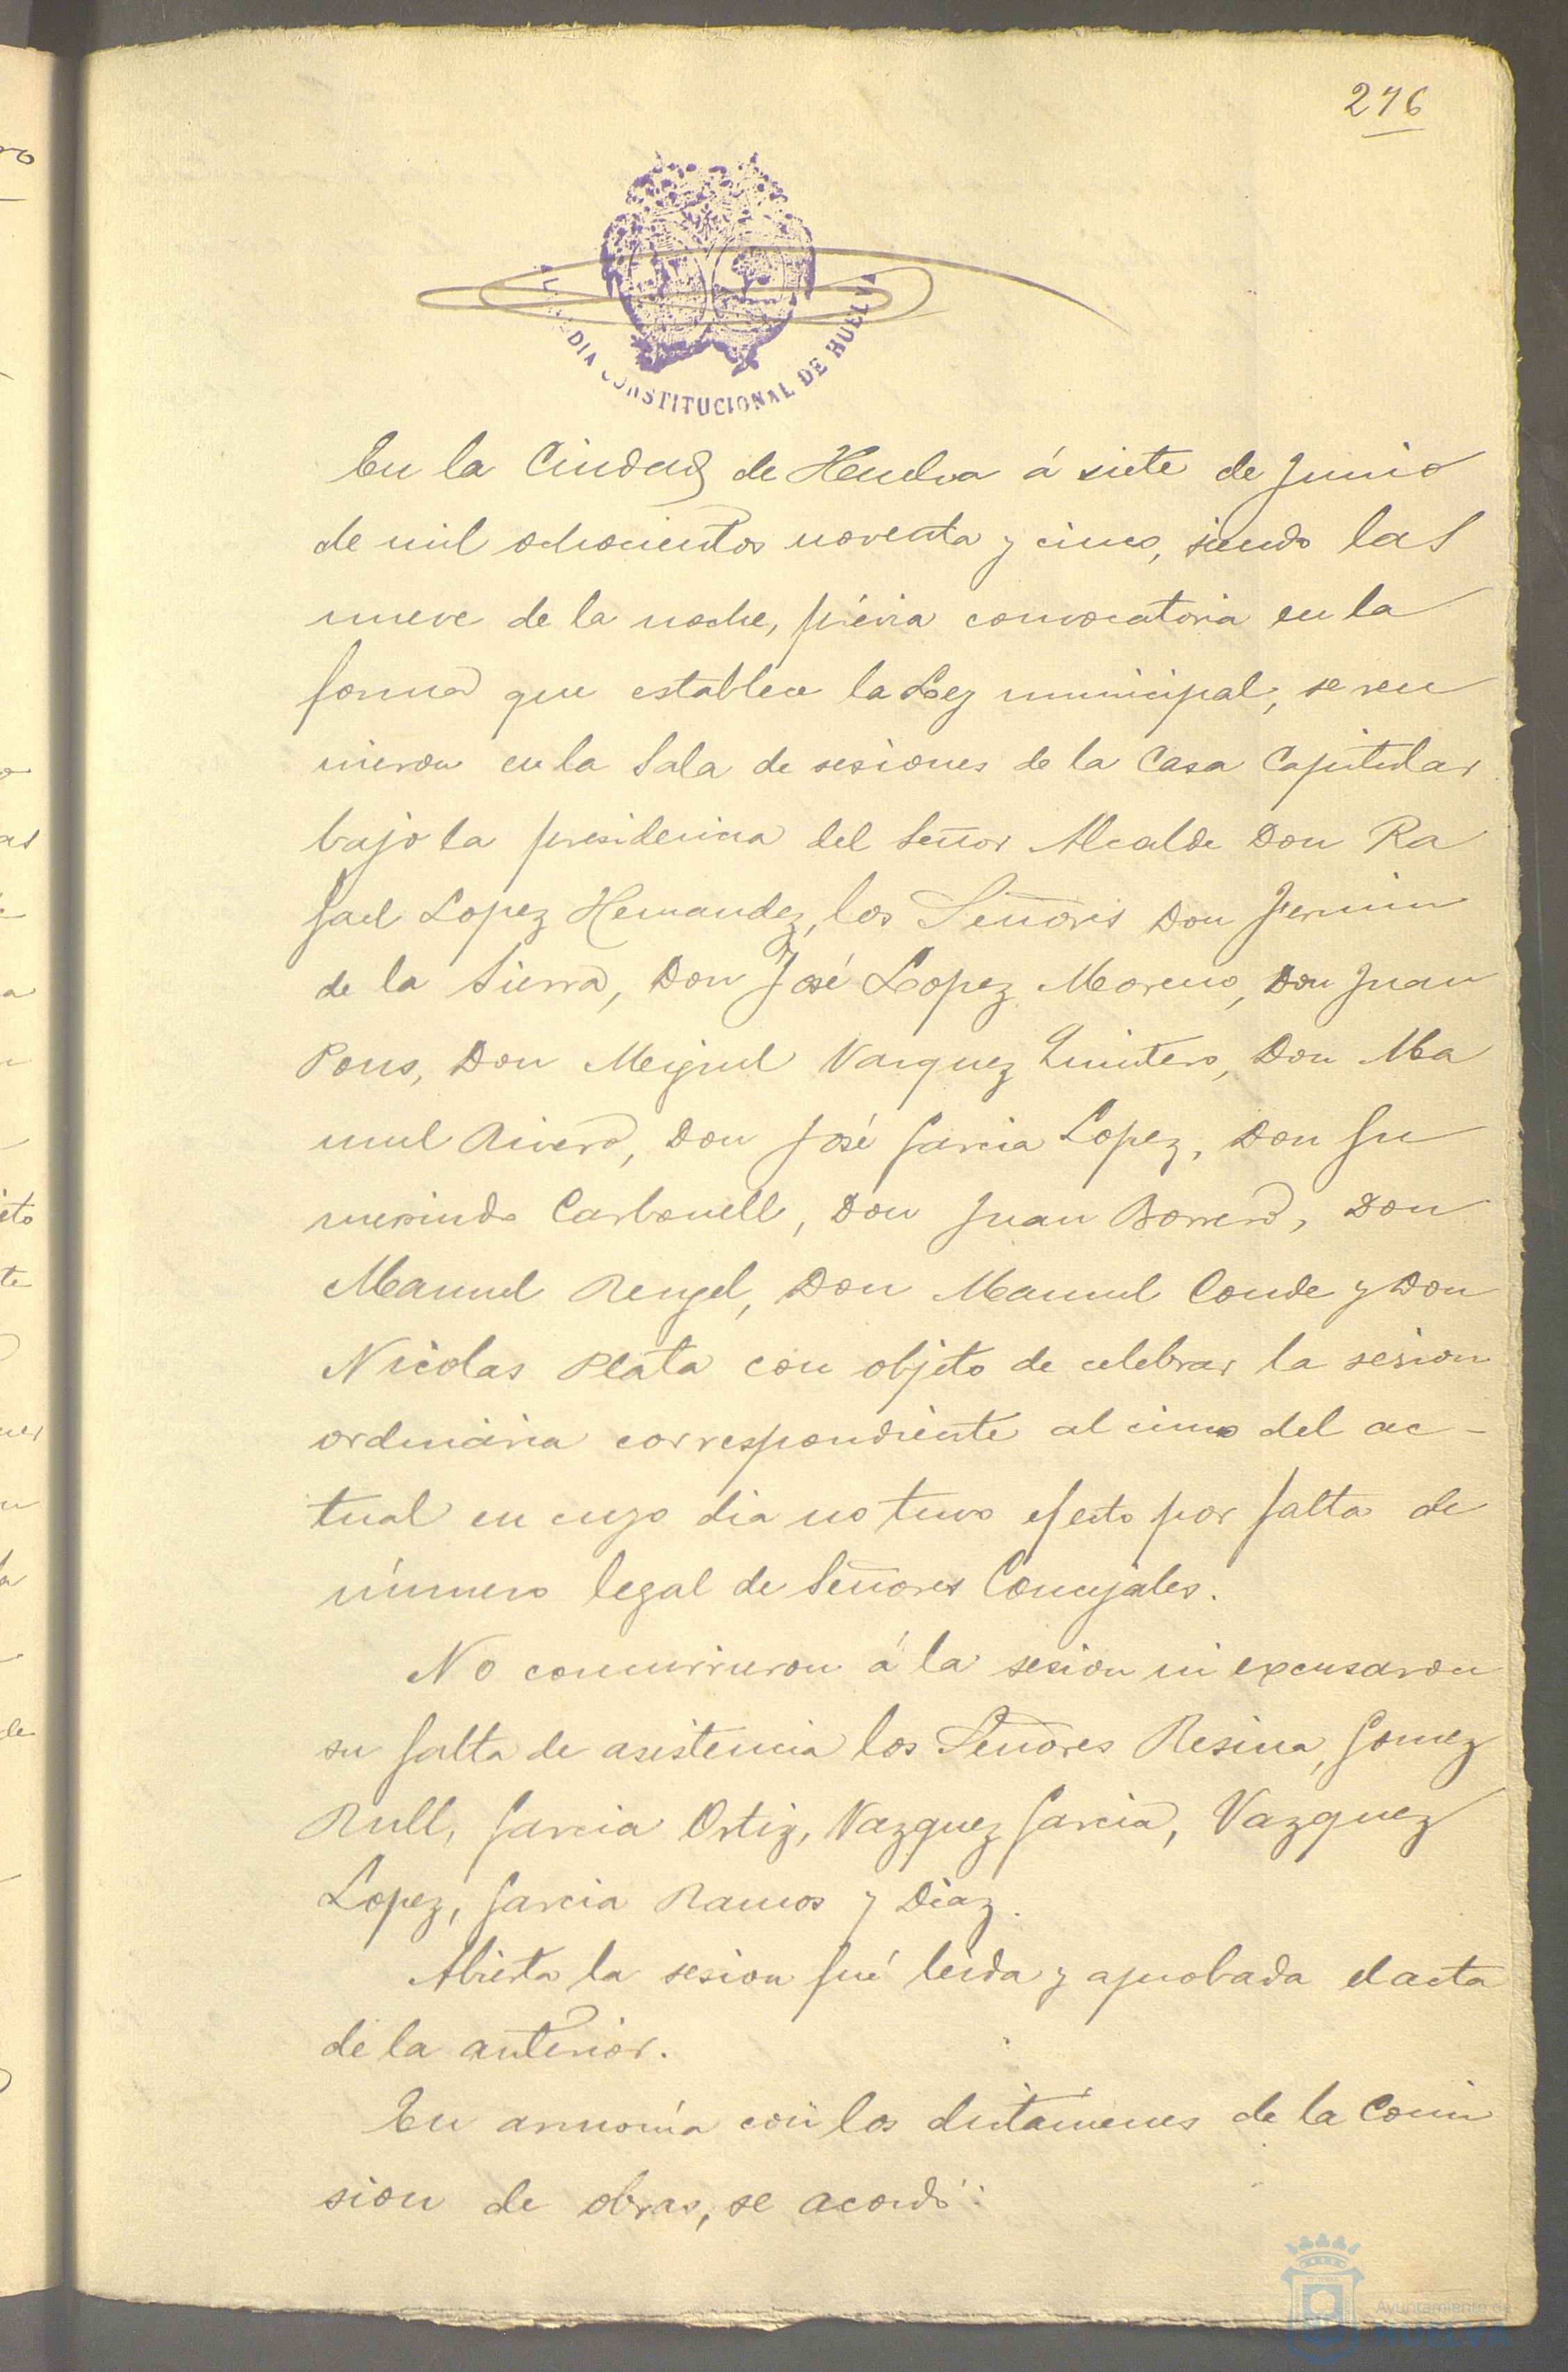 276
ALCALDIA CONSTITUCIONAL DE HUELVA
En la Ciudad de Huelva á siete de Junio
de mil ochocientos noventa y cinco, siendo las
nueve de la noche, prévia convocatoria en la
forma que establece la Ley municipal, se reu
nieron en la Sala de sesiones de la Casa Capitular
bajo la presidencia del Señor Alcalde Don Ra
fael Lopez Hernandez, los Señores Don Fermin
de la Sierra, Don José Lopez Moreno, Don Juan
Pons, Don Miguel Vazquez Quintero, Don Ma
nuel Rivero, Don José Garcia Lopez, Don Gu
mersindo Carbonell, Don Juan Borrero, Don
Manuel Rengel, Don Manuel Conde y Don
Nicolas Plata con objeto de celebrar la sesion
ordinaria correspondiente al cinco del ac-
tual en cuyo dia no tuvo efecto por falta de
número legal de Señores Concejales.
No concurrieron á la sesion ni excusaron
su falta de asistencia los Señores Resina, Gomez
Rull, Garcia Ortiz, Vazquez Garcia, Vazquez
Lopez, Garcia Ramos y Diaz.
Abierta la sesion fué leida y aprobada el acta
de la anterior.
En armonía con los dictámenes de la Comi
sion de obras, se acordó:
Ayuntamiento de
HUELVA